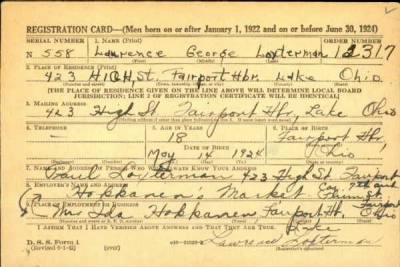 REGISTRATION CARD—(Men born on or after January 1, 1922 and on or before June 30, 1924)
SERIAL NUMBER 1. NAME (Print) ORDER NUMBER
N 558 Lawrence George Lopterman 12317
(First) (Middle) (Last)
2. PLACE OF RESIDENCE (Print)
423 HIGH St. Fairport Hbr. Lake Ohio
[THE PLACE OF RESIDENCE GIVEN ON THE LINE ABOVE WILL DETERMINE LOCAL BOARD
JURISDICTION; LINE 2 OF REGISTRATION CERTIFICATE WILL BE IDENTICAL]
3. MAILING ADDRESS
423 High St Fairport Hbr, Lake Ohio
[Mailing address if other than place indicated on line 2. If same insert word same]
4. TELEPHONE 5. AGE IN YEARS 6. PLACE OF BIRTH
18 Fairport Hbr.
DATE OF BIRTH
May 14 1924 Ohio
(Mo.) (Day) (Yr.)
7. NAME AND ADDRESS OF PERSON WHO WILL ALWAYS KNOW YOUR ADDRESS
423 High St. Fairport
8. EMPLOYER'S NAME AND ADDRESS
Hokkanen's Market
9. PLACE OF EMPLOYMENT OR BUSINESS
(Mrs Ida Hokkanen Fairport Hr. Ohio
Lake
I AFFIRM THAT I HAVE VERIFIED ABOVE ANSWERS AND THAT THEY ARE TRUE.
D. S. S. Form 1
Lawrence Lopterman